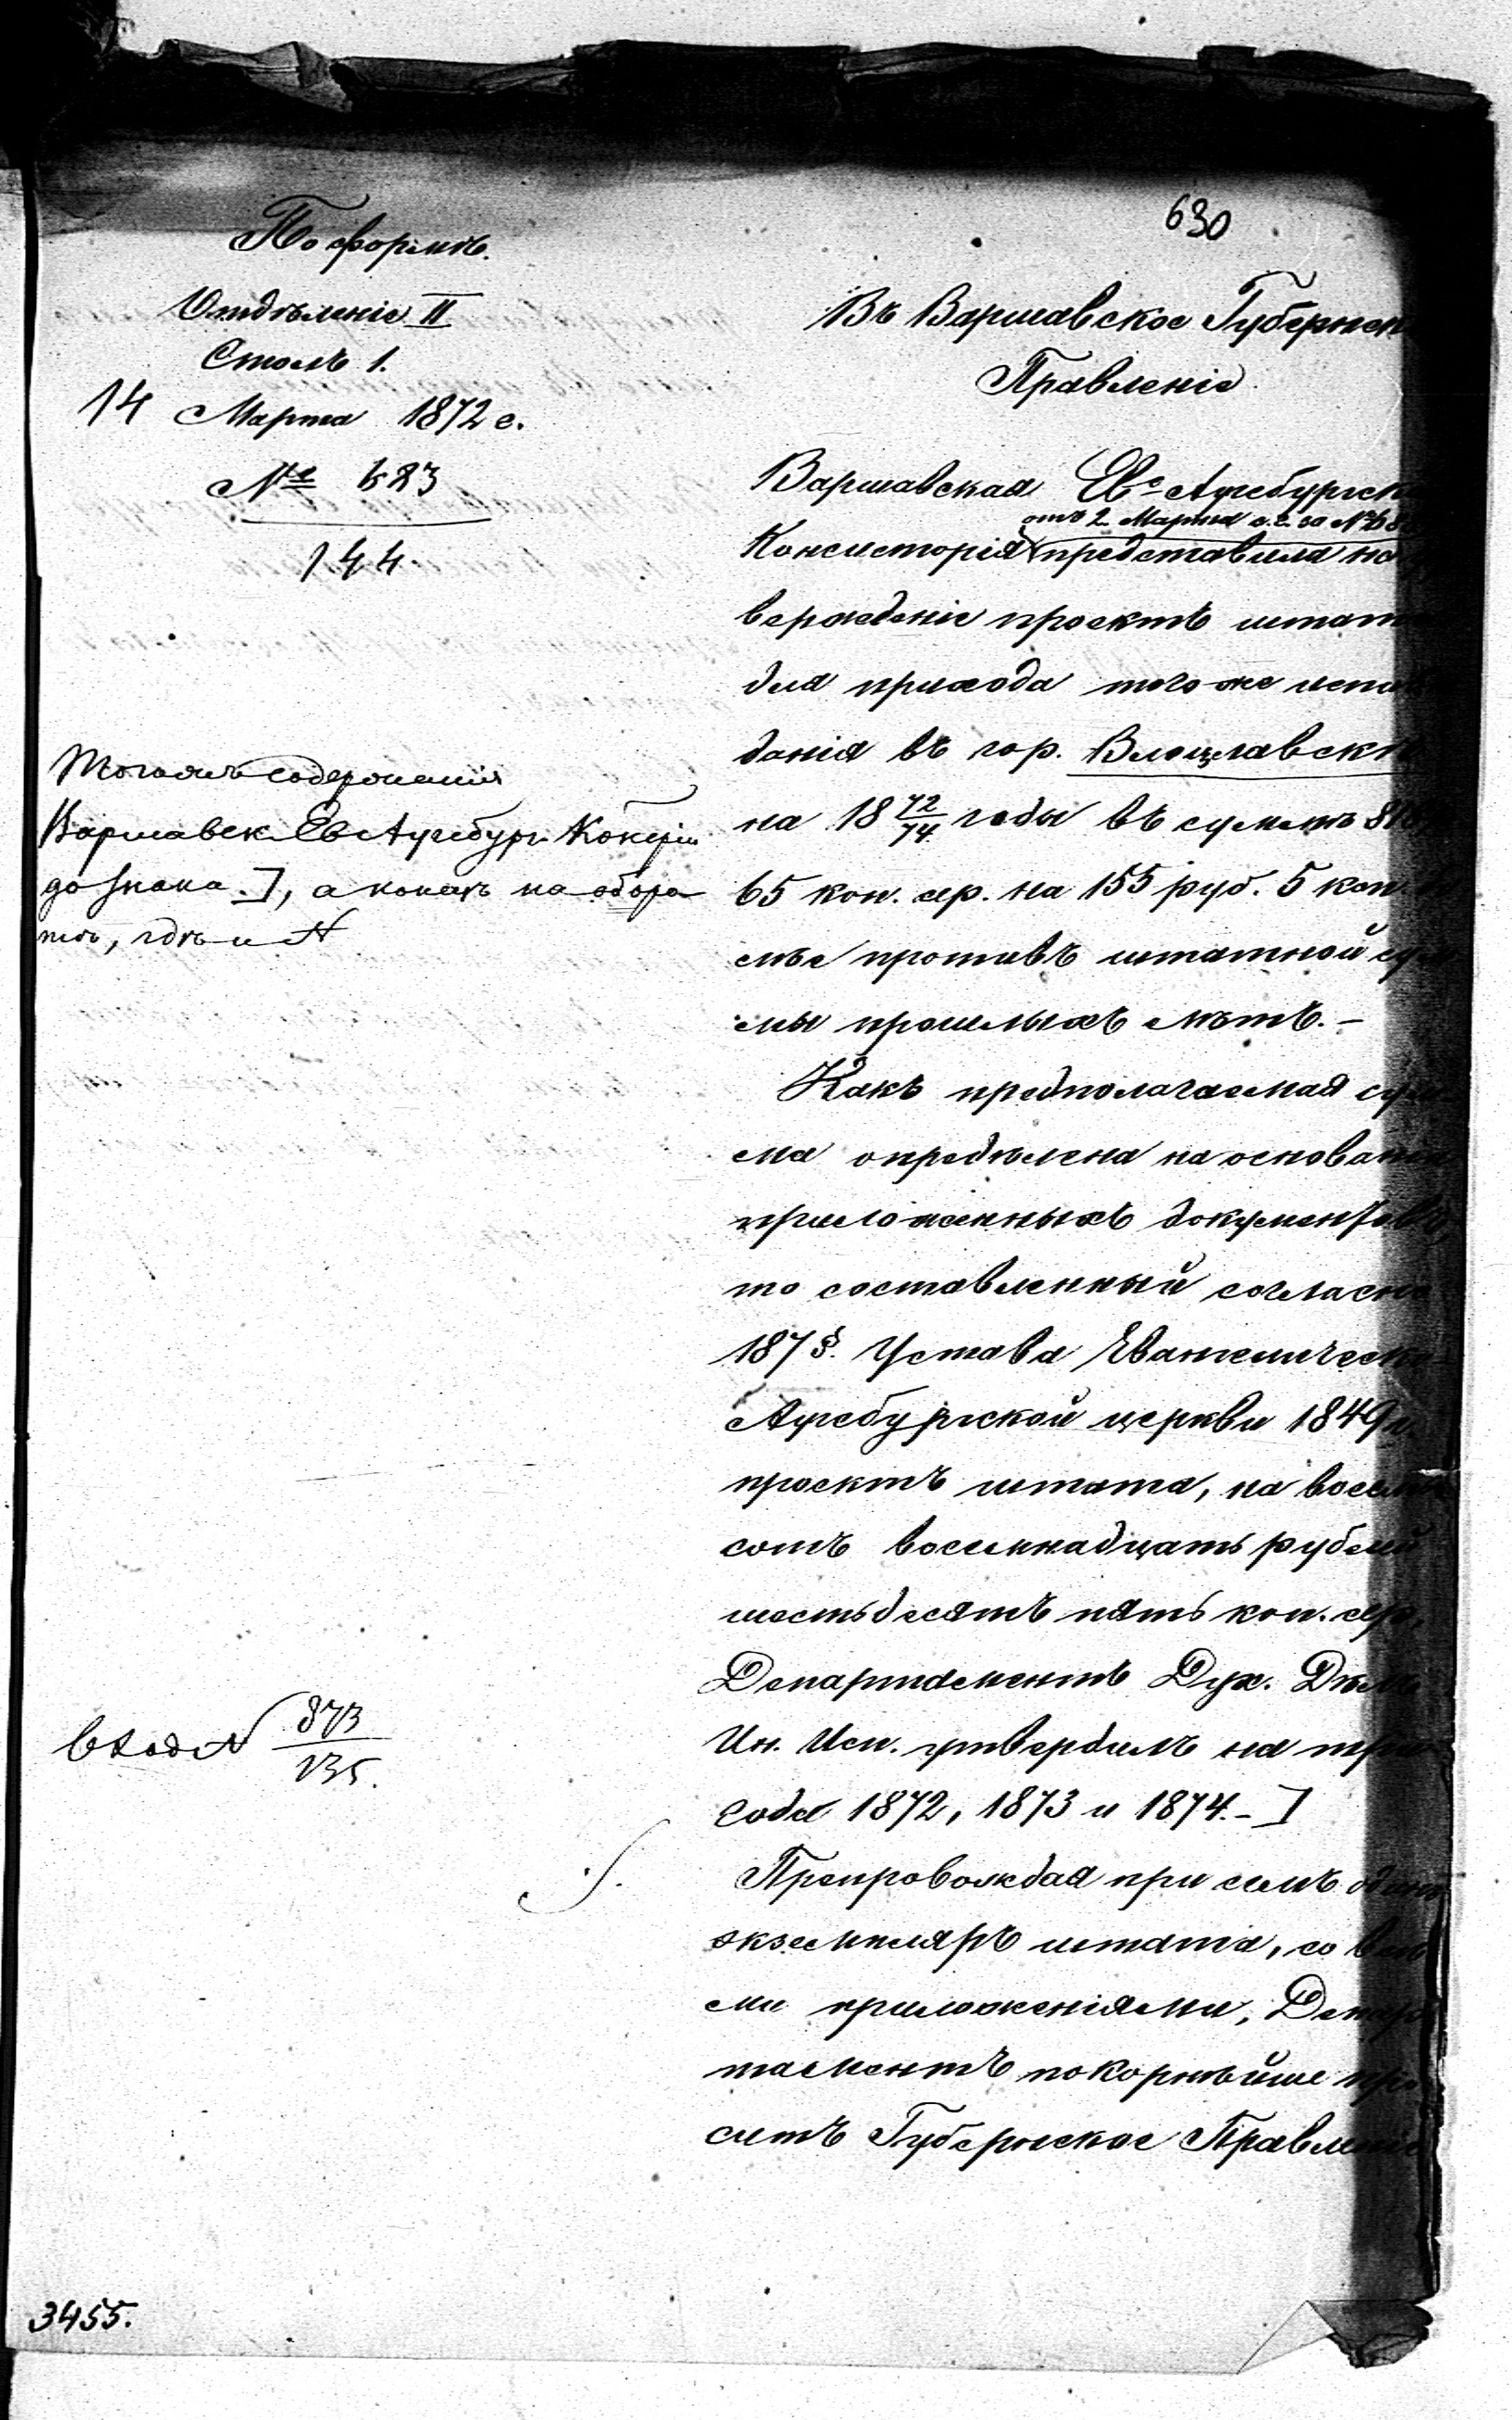 630
По формѣ.
Отдѣленіе II
Столъ 1.
14 Марта 1872 г.
№ 623
144.
Въ Варшавское Губернск
Правленіе
Варшавская Евᵒ Аугсбургск
отъ 2 Марта с. г. за №
Консисторія представила на
вержденіе проектъ штат
для прихода того же испов
данія въ гор. Влоцлавск
на 18 72/74 годы въ суммѣ 818
65 коп. сер. на 155 руб. 5 коп
мы прошлыхъ лѣтъ. –
Какъ предполагаемая сум
ма опредѣлена на основан
приложенныхъ документовъ,
то составленный согласно
187 §. Устава Евангелическ
Аугсбургской церкви 1849
проектъ штата, на восемь
сотъ восемнадцать рублей
шестьдесятъ пять коп. сер.,
Департаментъ Дух. Дѣлъ
Ин. Исп. утвердилъ на три
года 1872, 1873 и 1874. – ]
Препровождая при семъ одинъ
экземпляръ штата, со все
ми приложеніями, Депар
таментъ покорнѣйше про
ситъ Губернское Правленіе
Тогоже содержанія
Варшавск. Ев. Аугсбург.
до знака ], а конецъ на оборо
тѣ, гдѣ и №
вход № 873
135.
3455.